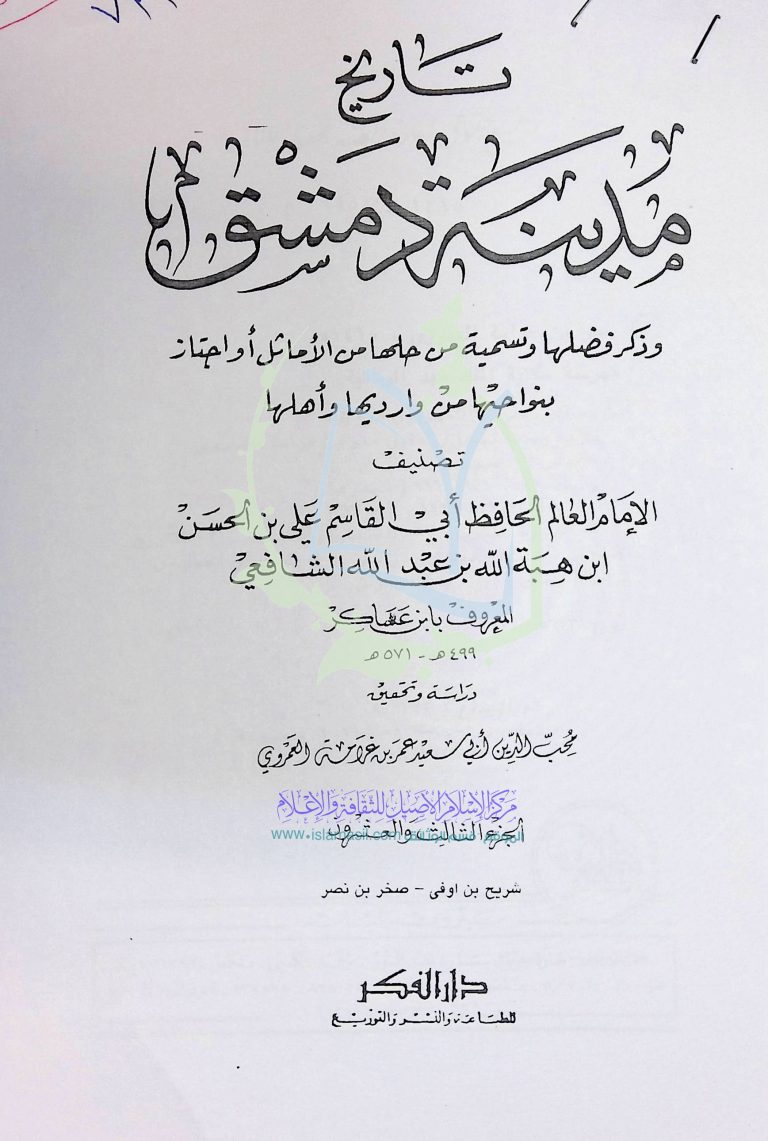 تاريخ
مدينة دمشق
وذكر فضلها وتسمية من حلها من الأماثل أو اجتاز
بنواحيها من وارديها وأهلها
تصنيف
الإمام العالم الحافظ أبي القاسم علي بن الحسن
ابن هبة الله بن عبد الله الشافعي
المعروف بابن عساكر
٤٩٩ هـ - ٥٧١ هـ
دراسة وتحقيق
محب الدين أبي سعيد عمر بن غرامة العمروي
مركز الإسلام الأصيل للثقافة والإعلام
الجزء الثالث والعشرون
شريح بن اوفى - صخر بن نصر
دار الفكر
للطباعة والنشر والتوزيع